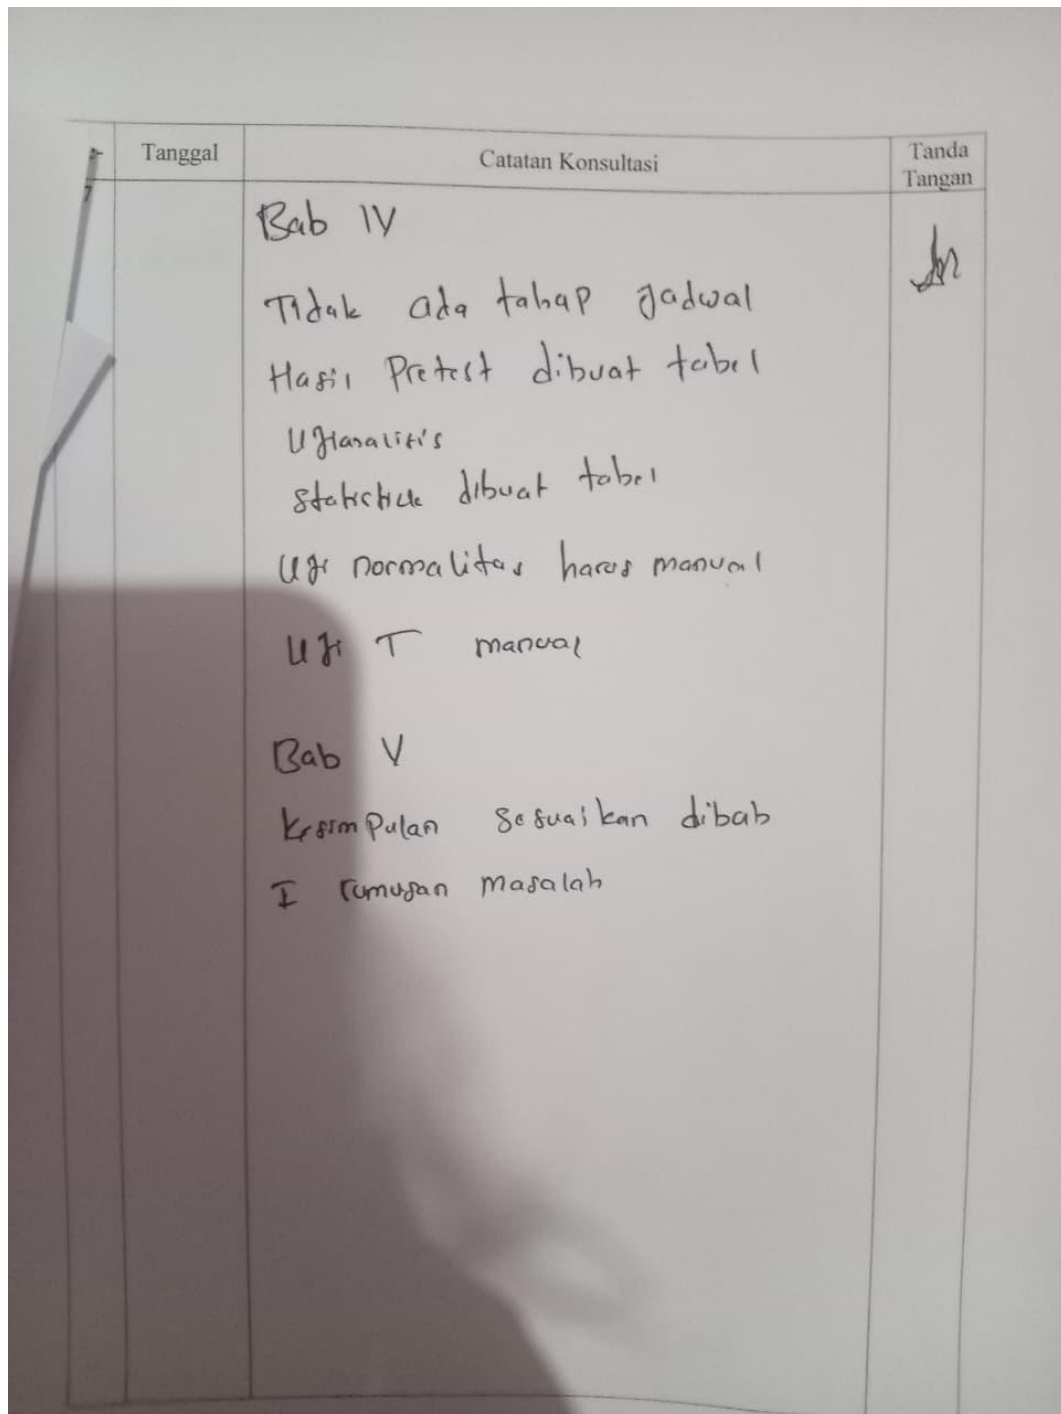 Tanggal
Catatan Konsultasi
Tanda
Tangan
Bab IV
Tidak ada tahap jadwal
Hasil Pretest dibuat tabel
dibuat tabel
Uji normalitas harus manual
Uji T manual
Bab V
Kesimpulan sesuaikan dibab
I rumusan masalah